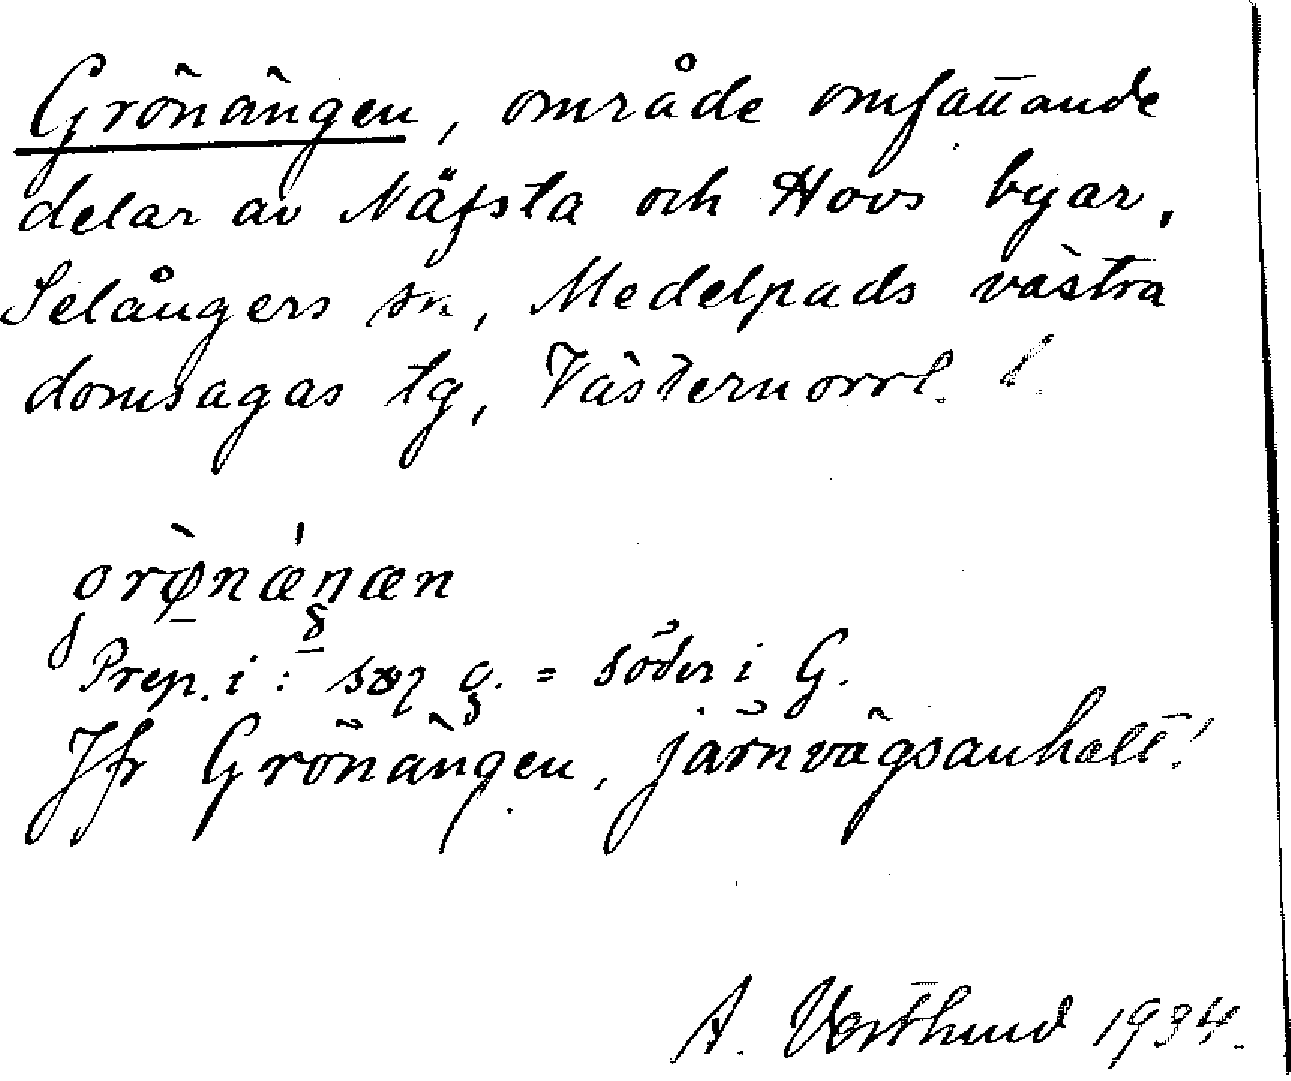 Grönängen, område omfattande
delar av Näfsta och Hovs byar,
Selångers sn, Medelpads västra
domsagas tg, Västernorrl. l.
Prep. i : = söder i G.
Jfr Grönängen, järnvägsanhalt!
A. Vestlund 1934.